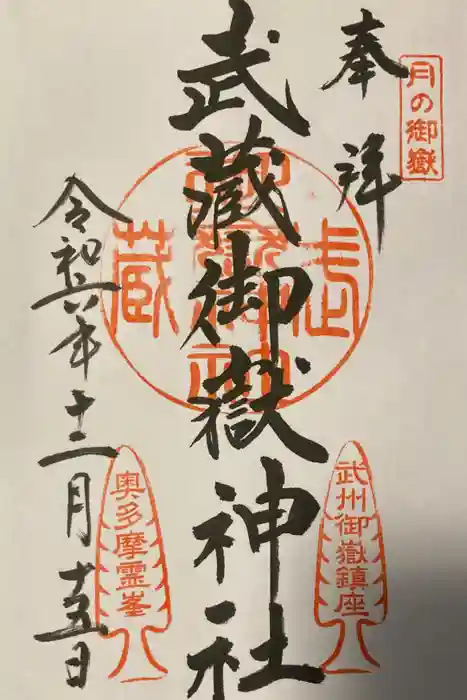 月の御嶽
奉拝
武蔵御嶽神社
令和六年十二月十五日
武州御嶽鎮座
奥多摩霊峯